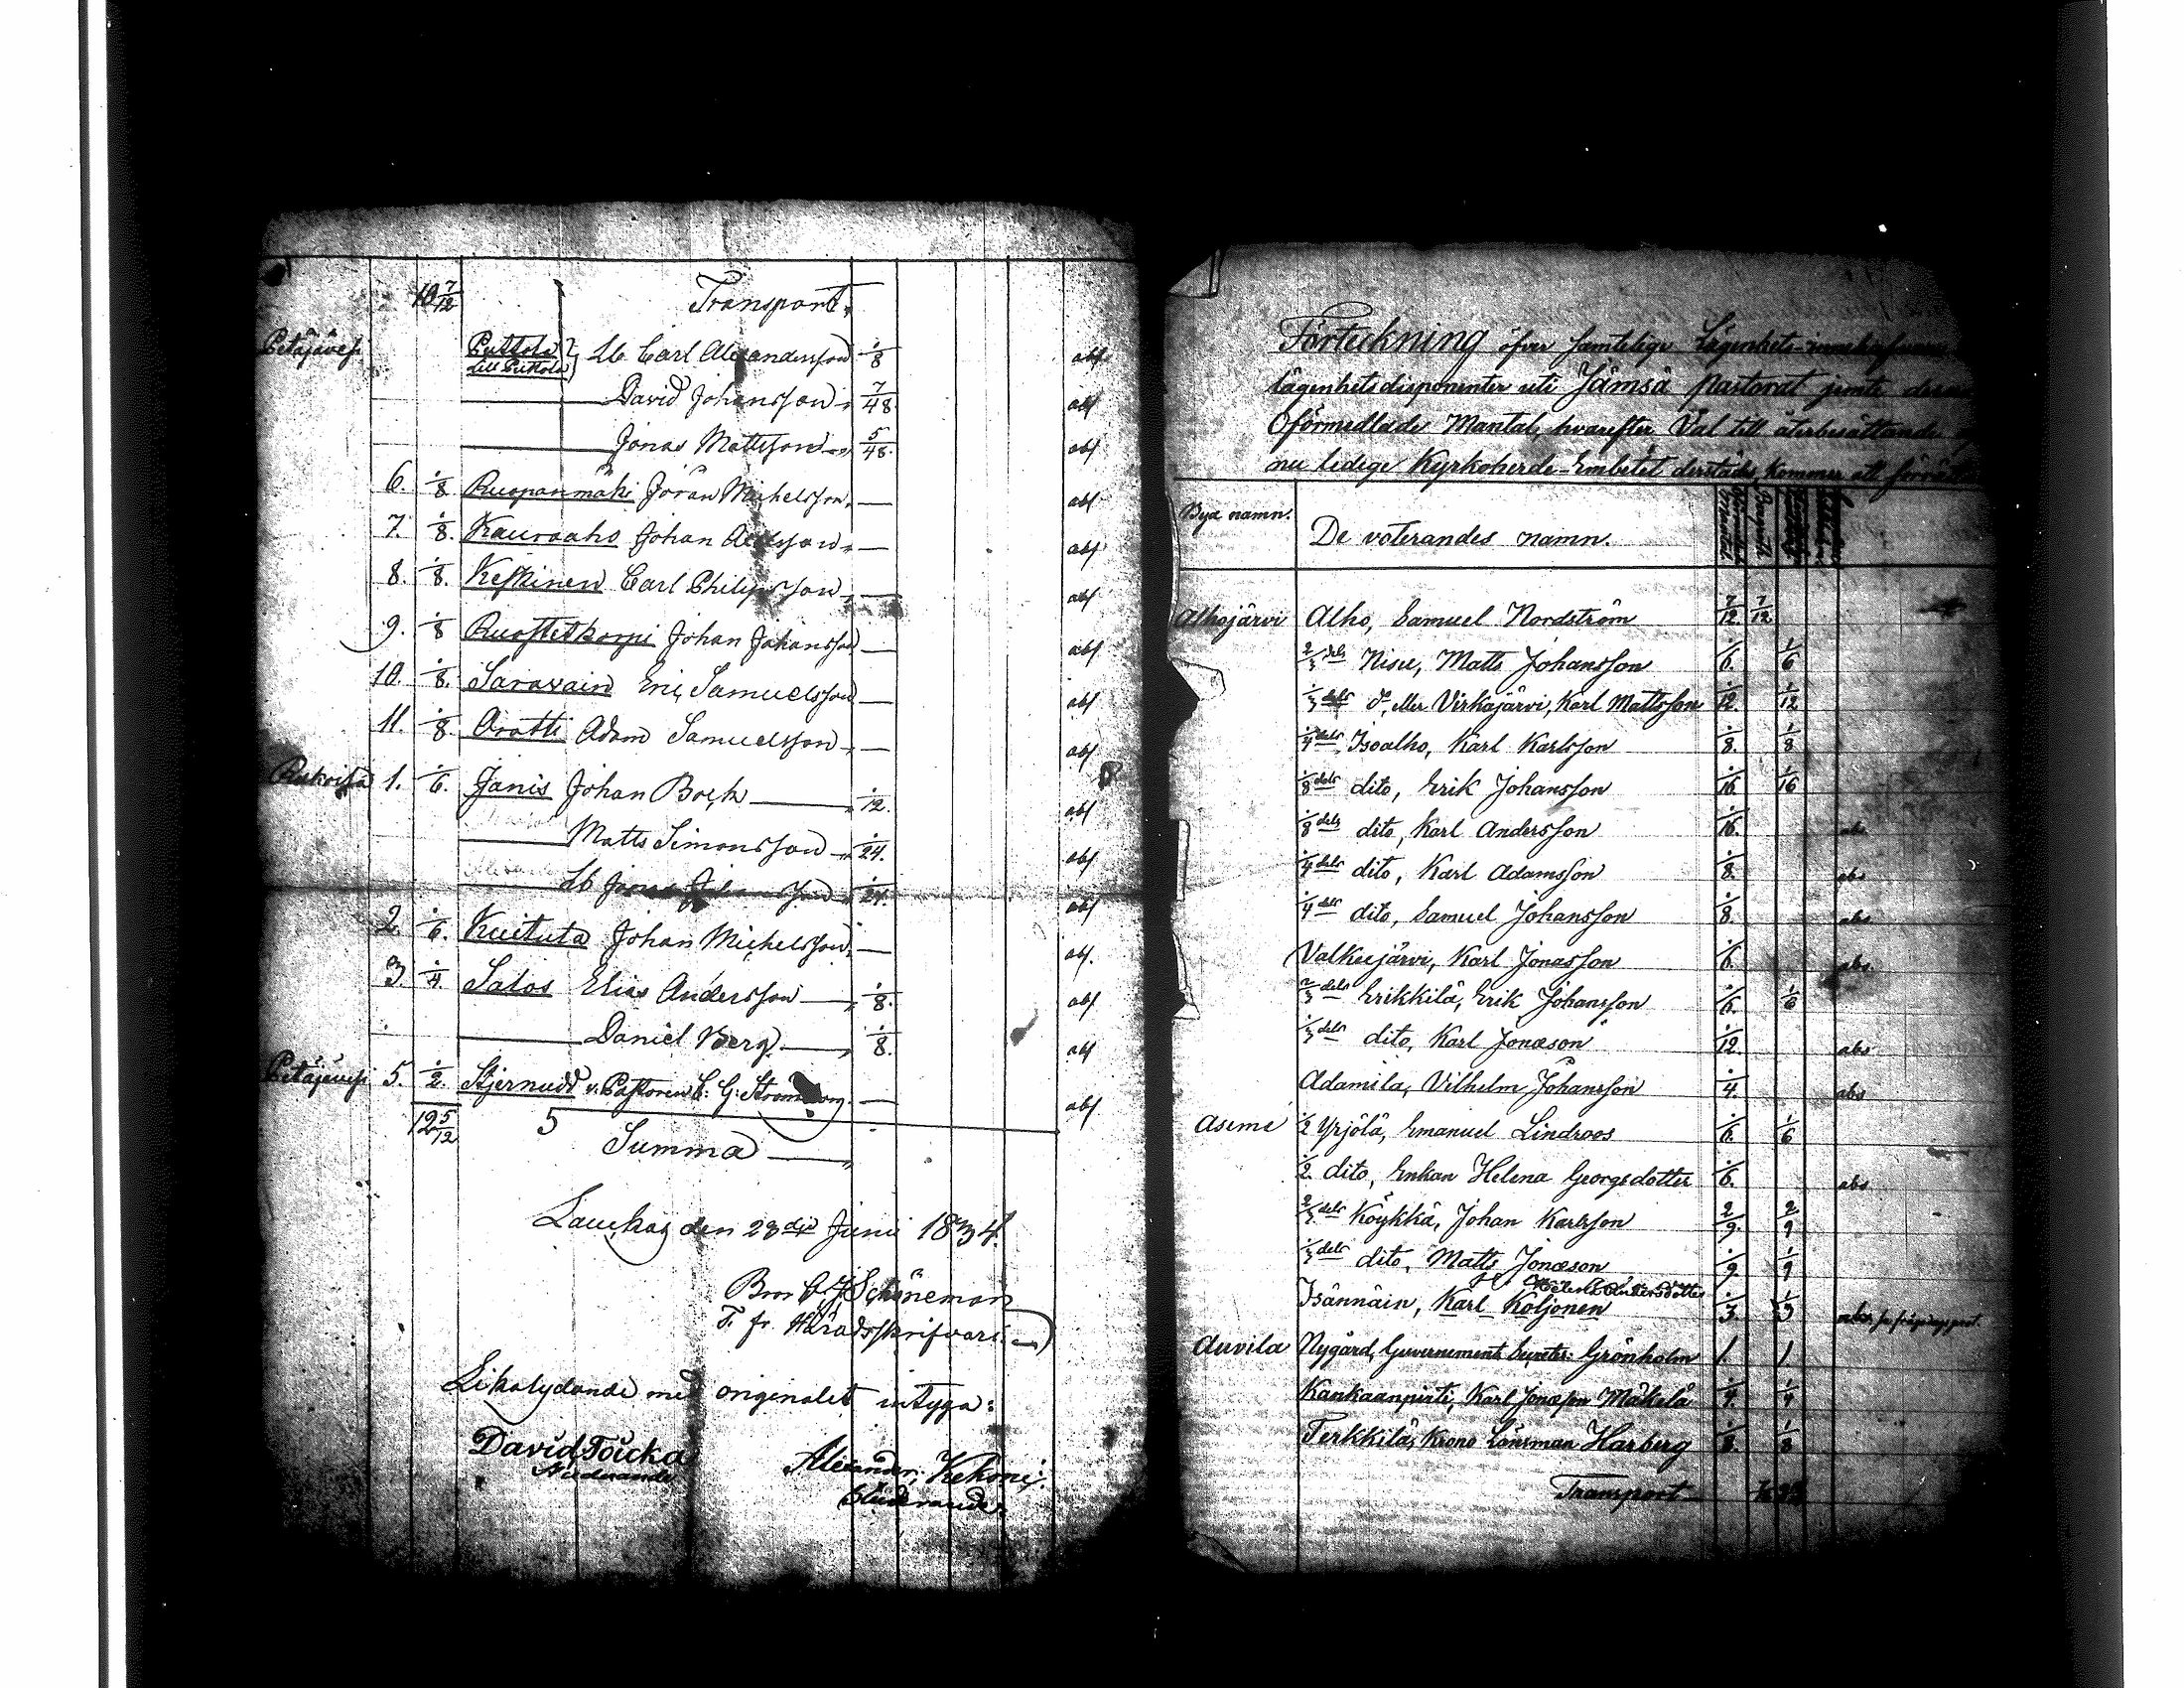 10 7/12 Transport.
Petäjävesi Puttola till Puttola Lb Carl Alexandersson 1/8 abs
David Johansson 7/48 abs
Jonas Mattsson 5/48 abs
6. 1/8 Ruopanmäki Jöran Michelsson — abs
7. 1/8 Kauraaho Johan — abs
8. 1/8 Keskinen Carl Philipsson — abs
9. 1/8 Ruostetkorpi Johan Johansson — abs
10. 1/8 Saravain Eric Samuelsson — abs
11. 1/8 Aratti Adam Samuelsson — abs
1. 1/6 Janis Johan Bock 1/12 abs
Matts Simonsson 1/24 abs
Lb 1/24 abs
2. 1/6 Kuituta Johan Michelsson — abs.
3. 1/4 Salos Elias Andersson 1/8 abs
Daniel Berg 1/8 abs
Petäjävesi 5. 1/2 Stjernudd v. Pastoren C. G. — abs
12 5/12 5 Summa
Laukas den 23dje Junii 1834.
Schöneman
T. f. Häradsskrifvare
Likalydande med originalet intyga:
David Toicka Alexander Kekoni
Studerande Studerande
Förteckning öfver samtelige Lägenhets-innehafvare
lägenhetsdisponenter uti Jämsä pastorat jemte deras
Oförmedlade Mantal, hvarefter Val till återbesättande
nu ledige Kyrkoherde-Embetet derstädes kommer att förrättas
Bya namn. De voterandes namn.
Alhojärvi Alho, Samuel Nordström 7/12 7/12
2/3 dels Nisu, Matts Johansson 1/6 1/6
1/3 dels d:o eller Virkajärvi, Karl Mattsson 1/12 1/12
1/4 dels Isoalho, Karl Karlsson 1/8 1/8
1/8 dels dito, Erik Johansson 1/16 1/16
1/8 dels dito, Karl Andersson 1/16 abs
1/4 dels dito, Karl Adamsson 1/8 abs
1/4 dels dito, Samuel Johansson 1/8 abs
Valkeejärvi, Karl Jonasson 1/6 abs.
2/3 dels Erikkilä, Erik Johansson 1/6 1/6
1/3 dels dito, Karl Jonasson 1/12 abs
Adamila, Vilhelm Johansson 1/4 abs
Aseme 1/2 Yrjölä, Emanuel Lindroos 1/6 1/6
1/2 dito, Enkan Helena Georgsdotter 1/6 abs
2/3 dels Köykkä, Johan Karlsson 2/9 2/9
1/3 dels dito, Matts Jonasson 1/9 1/9
Helena Andersdotter
Isännäin, Karl Koljonen 1/3 1/3
Auvila Nygård, Guvernements Grönholm 1 1
Kankaanpirti, Karl Jonasson Mäkelä 1/4 1/4
Terkkilä, Krono Länsman Harberg 1/8 1/8
Transport